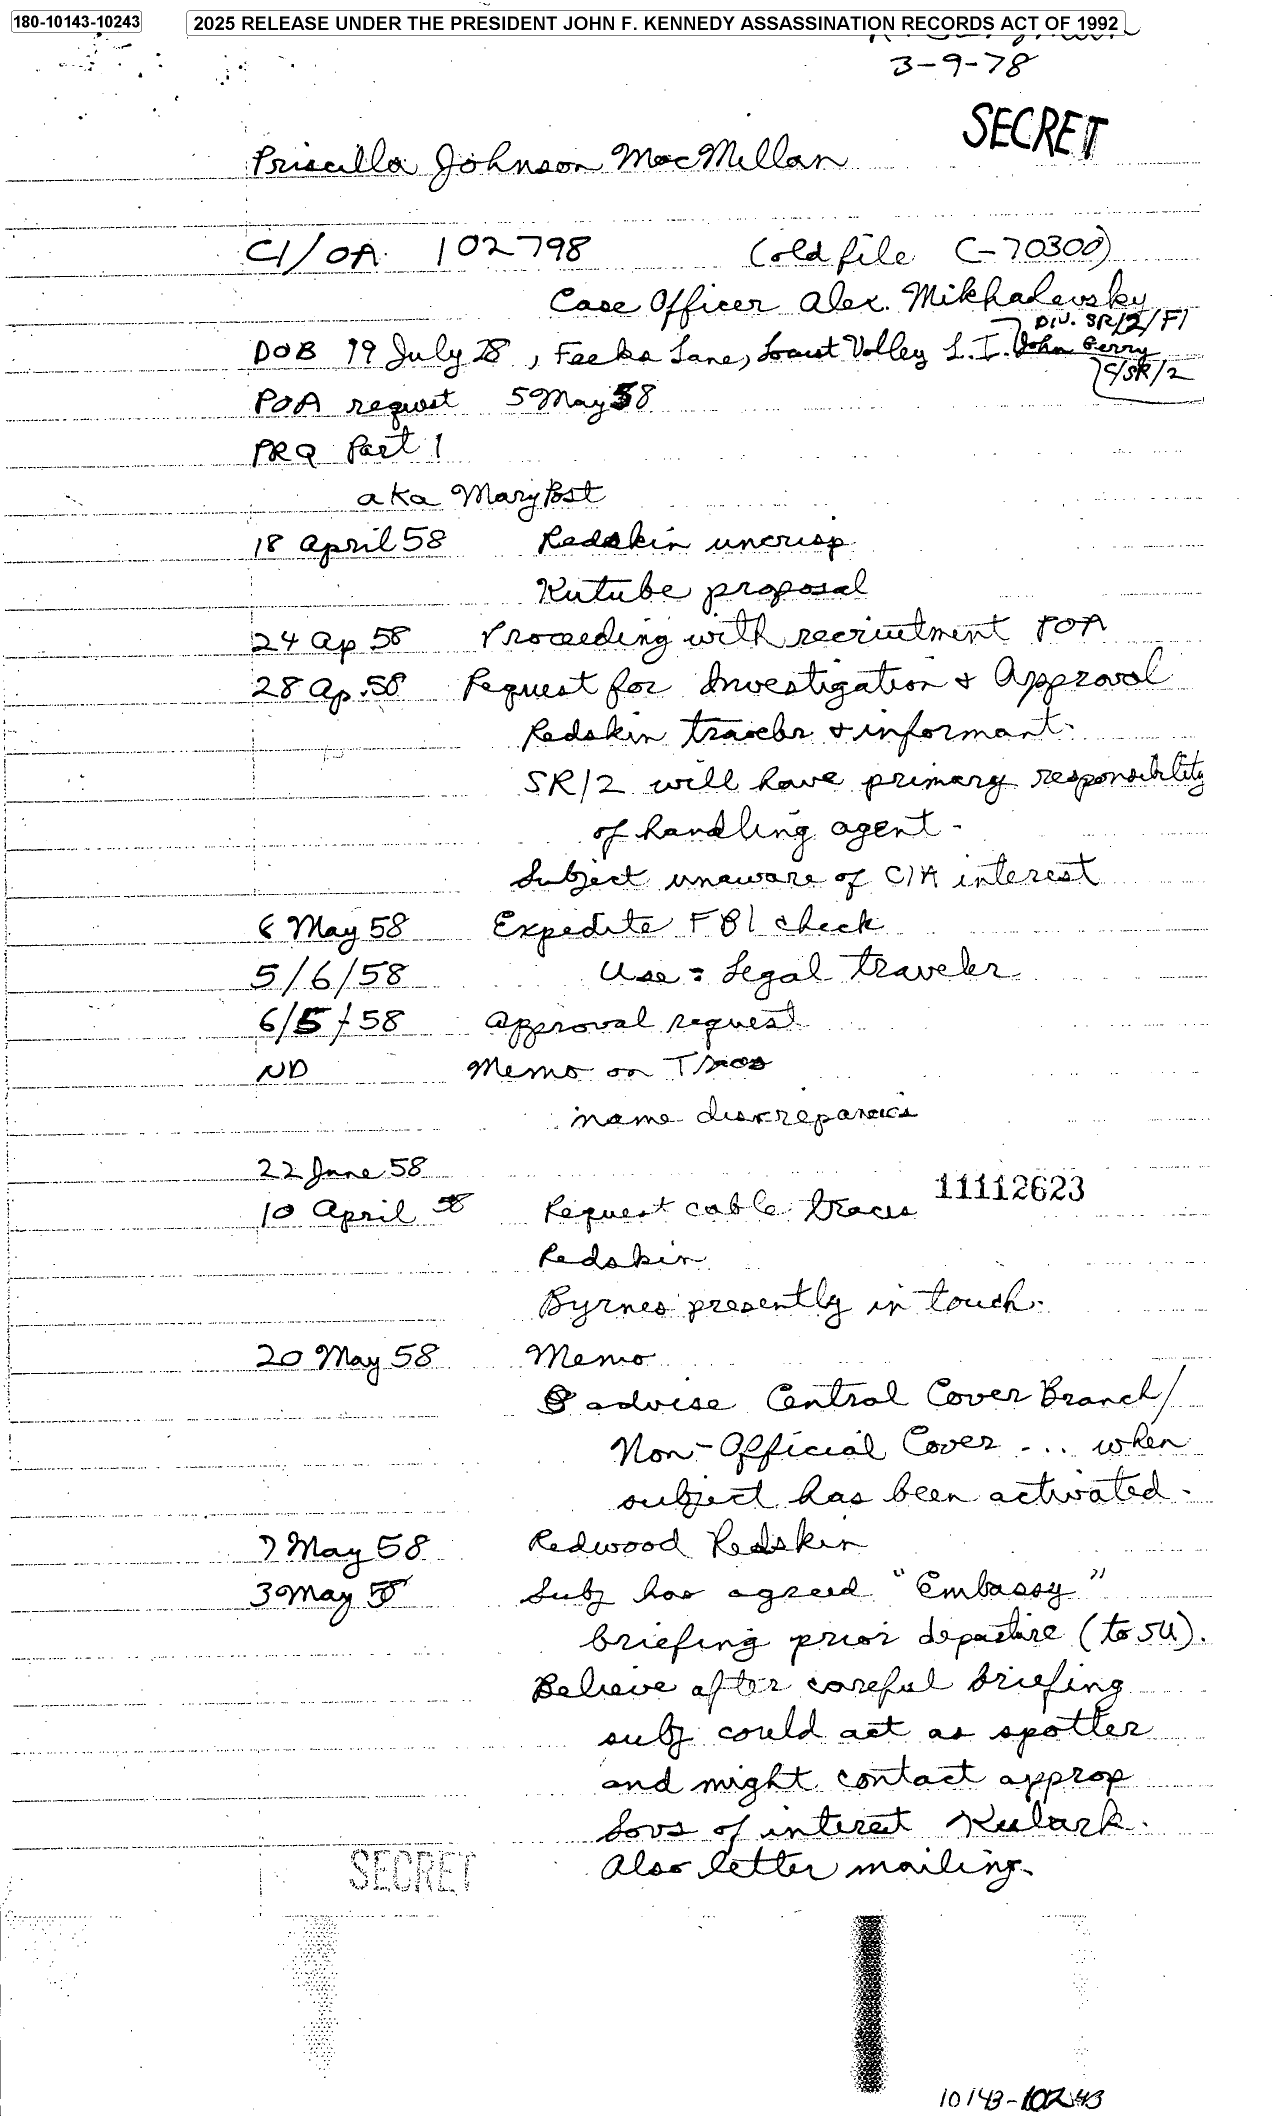 180-10143-10243
2025 RELEASE UNDER THE PRESIDENT JOHN F. KENNEDY ASSASSINATION RECORDS ACT OF 1992
3-9-78
SECRET
Priscilla Johnson MacMillan
CI/OA 102798 (old file C-70300)
Case Officer Alex. Mikhalevsky
Div. SR/2/FI
DOB 19 July 28, Feeks Lane, Locust Valley L.I. John Gerry
C/SR/2
POA request 5 May 58
PRQ Part 1
aka Mary Post
18 April 58 Redskin
Kutube proposal
24 Ap 58 Proceeding with recruitment POA
28 Ap. 58 Request for Investigation + Approval
Redskin traveler + informant.
SR/2 will have primary responsibility
of handling agent -
Subject unaware of CIA interest
6 May 58 Expedite FBI check
5/6/58 Use = Legal traveler
6/5/58 Approval request
ND Memo on
name discrepancies
22 June 58
10 April 58 Request cable traces
11112623
Redskin
Byrnes presently in touch.
20 May 58 Memo
advise Central Cover Branch/
Non-Official Cover ... when
subject has been activated.
7 May 58 Redwood Redskin
3 May 58 Subj has agreed "Embassy"
briefing prior departure (to SU).
Believe after careful briefing
subj could act as spotter
and might contact approp
Sovs of interest Kubark.
Also letter mailing.
SECRET
10143-10243